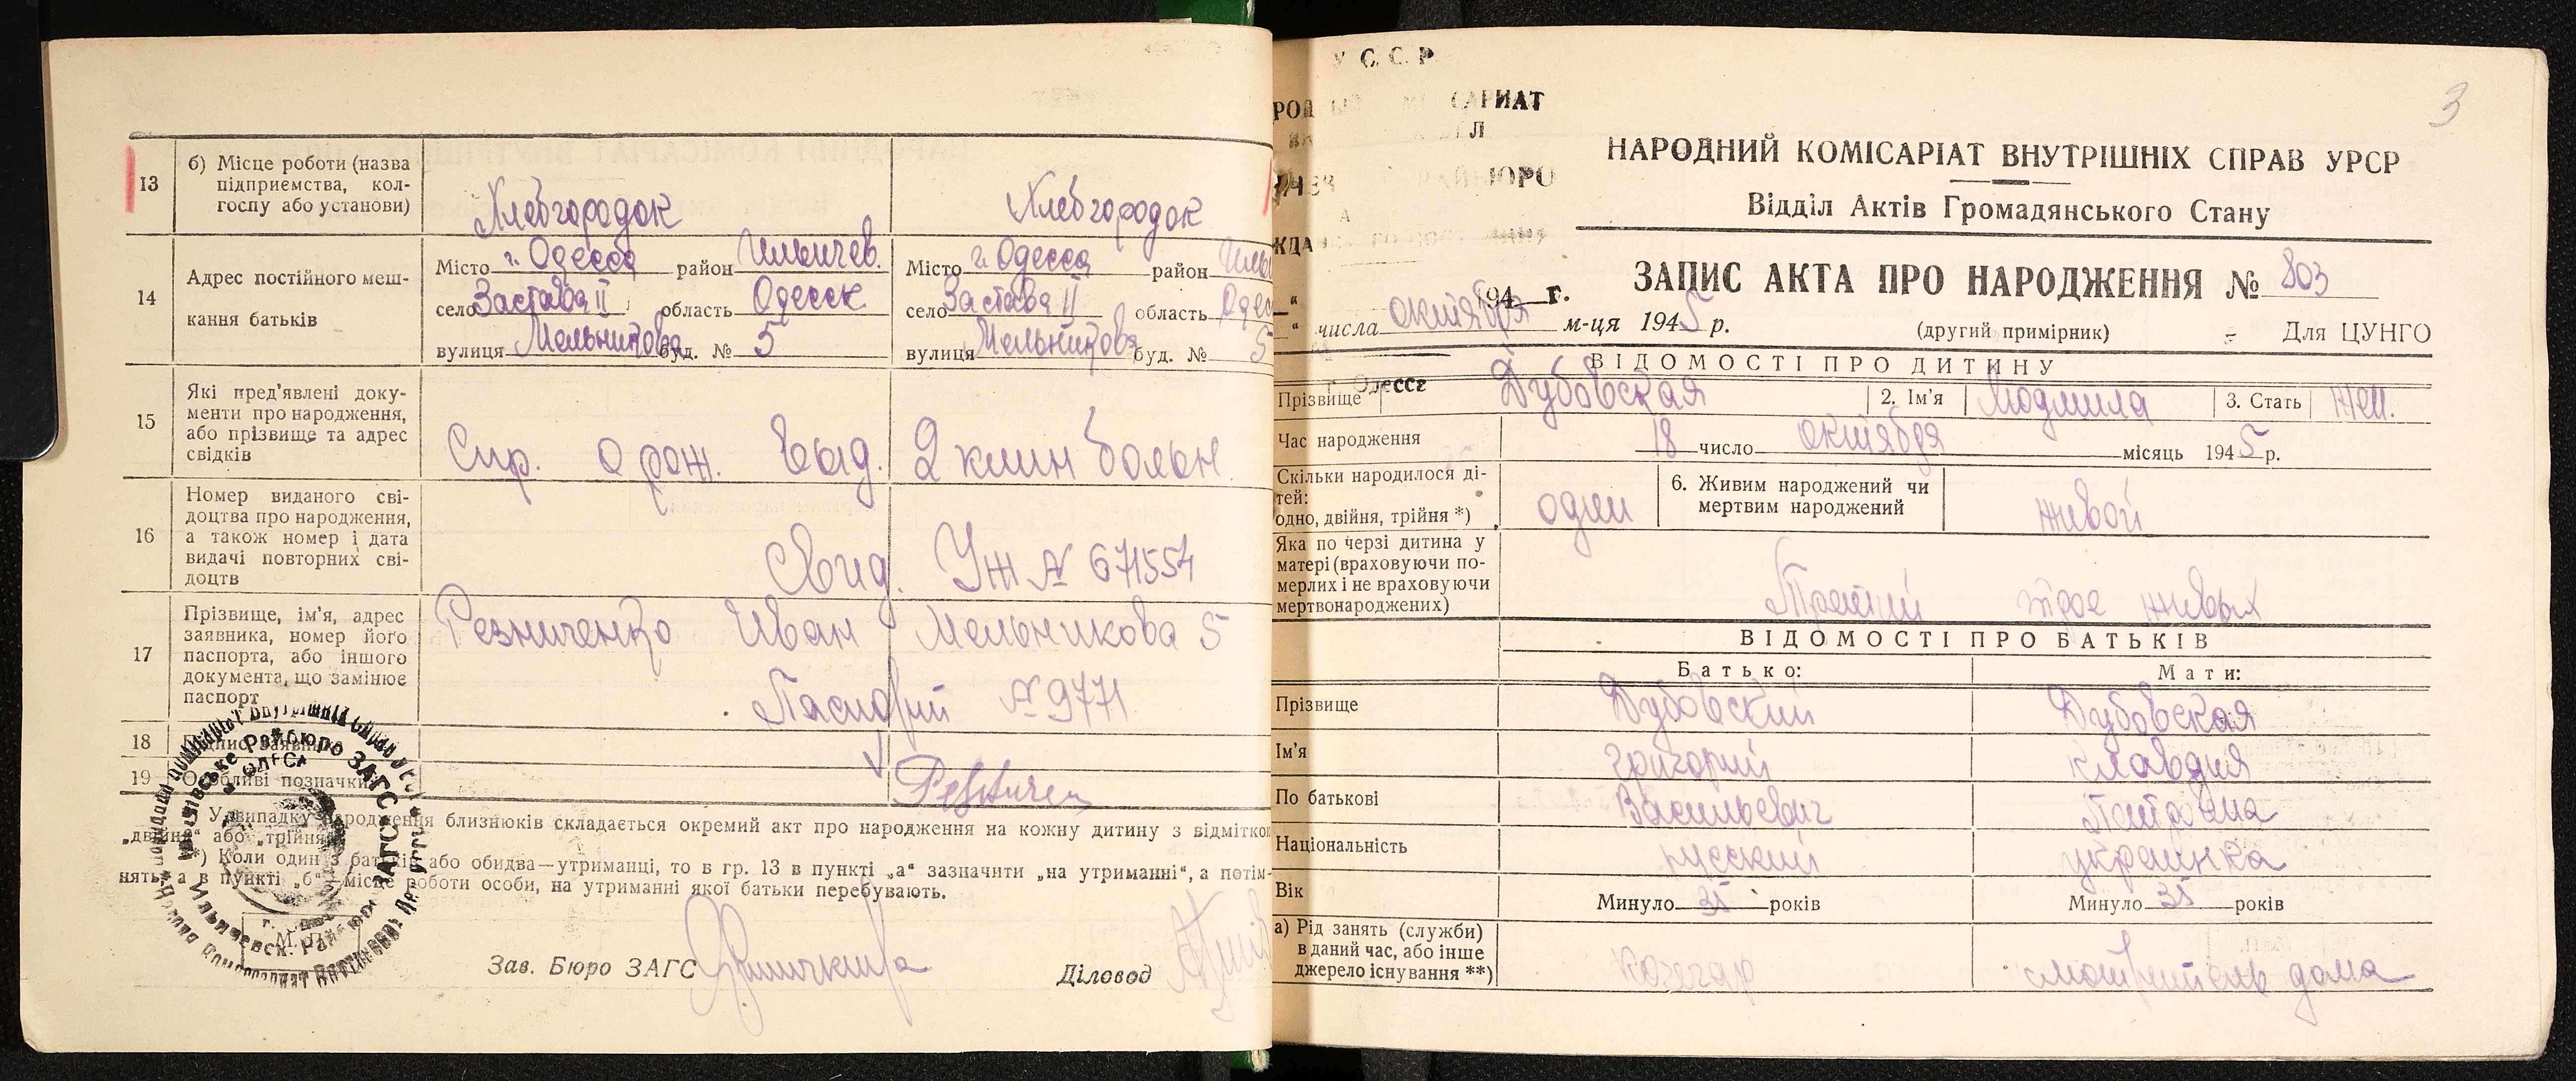 13
б) Місце роботи (назва
підприємства, кол-
госпу або установи)
Хлебгородок
Хлебгородок
14
Адрес постійного меш-
кання батьків
Місто г. Одесса район Ильичев.
село Застава II область Одесск
вулиця Мельникова буд. № 5
Місто г. Одесса район
село Застава II область
вулиця Мельникова буд. № 5
15
Які пред'явлені доку-
менти про народження,
або прізвище та адрес
свідків
Спр. о рож. выд. 2 клин больн.
16
Номер виданого сві-
доцтва про народження,
а також номер і дата
видачі повторних сві-
доцтв
Свид. УЖ № 671554
17
Прізвище, ім'я, адрес
заявника, номер його
паспорта, або іншого
документа, що замінює
паспорт
Резниченко Иван Мельникова 5
Паспорт № 9771
18
Підпис заявника
19
Особливі позначки
У випадку народження близнюків складається окремий акт про народження на кожну дитину з відміткою
„двійня“ або „трійня“
*) Коли один з батьків або обидва—утриманці, то в гр. 13 в пункті „а“ зазначити „на утриманні“, а потім
нять, а в пункті „б“—місце роботи особи, на утриманні якої батьки перебувають.
М. П.
Зав. Бюро ЗАГС
Діловод
3
У С. С. Р.
НАРОДНИЙ КОМІСАРІАТ ВНУТРІШНІХ СПРАВ УРСР
Відділ Актів Громадянського Стану
ЗАПИС АКТА ПРО НАРОДЖЕННЯ № 803
194 г.
числа октября м-ця 1945 р.
(другий примірник)
Для ЦУНГО
ВІДОМОСТІ ПРО ДИТИНУ
Прізвище Дубовская 2. Ім'я Людмила 3. Стать жен.
Час народження 18 число октября місяць 1945 р.
Скільки народилося ді-
тей:
одно, двійня, трійня *)
один
6. Живим народжений чи
мертвим народжений
живой
Яка по черзі дитина у
матері (враховуючи по-
мерлих і не враховуючи
мертвонароджених)
Третий трое живых
ВІДОМОСТІ ПРО БАТЬКІВ
Батько: Мати:
Прізвище Дубовский Дубовская
Ім'я Григорий Клавдия
По батькові Васильевич
Національність русский украинка
Вік Минуло 35 років Минуло 35 років
а) Рід занять (служби)
в даний час, або інше
джерело існування **)
кочегар
смотритель дома